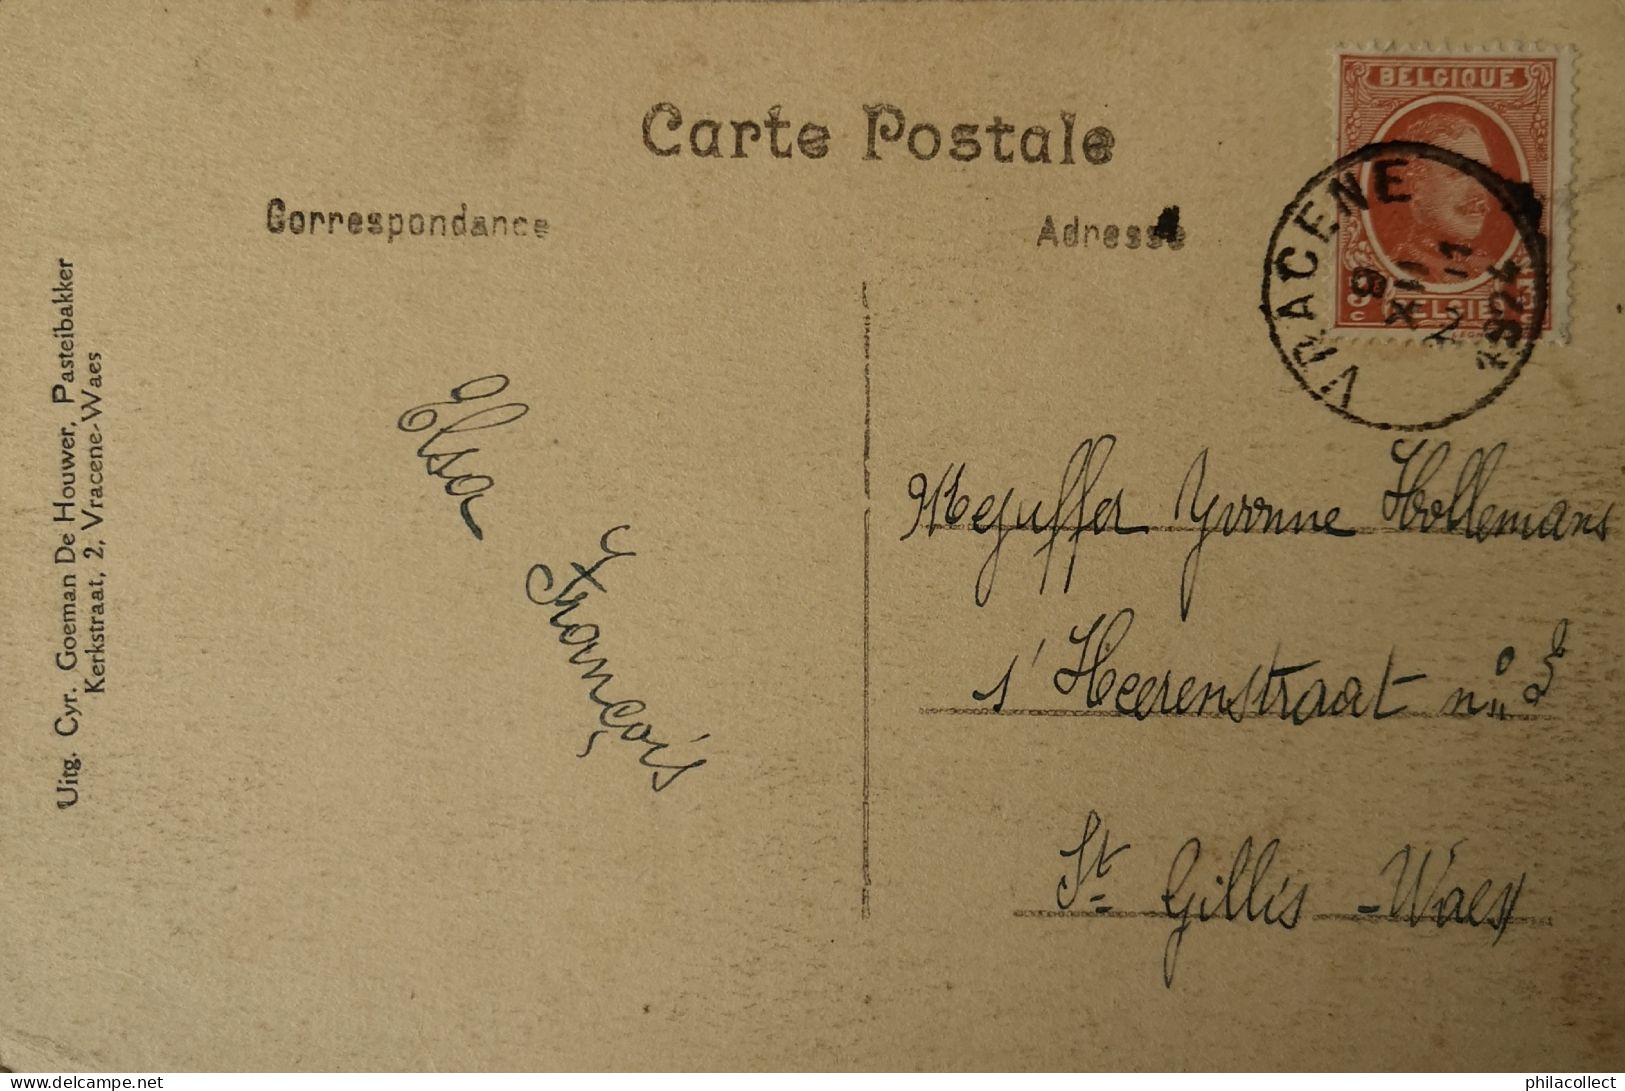 Carte Postale
Correspondance
Adresse
BELGIQUE
BELGIË
VRACENE
1924
Uitg. Cyr. Goeman De Houwer, Pasteibakker
Kerkstraat, 2, Vracene-Waes
Elsa
François
Mejuffer Yvonne Hollemans
s' Heerenstraat n° 3
St Gillis-Waes
delcampe.net
philacollect